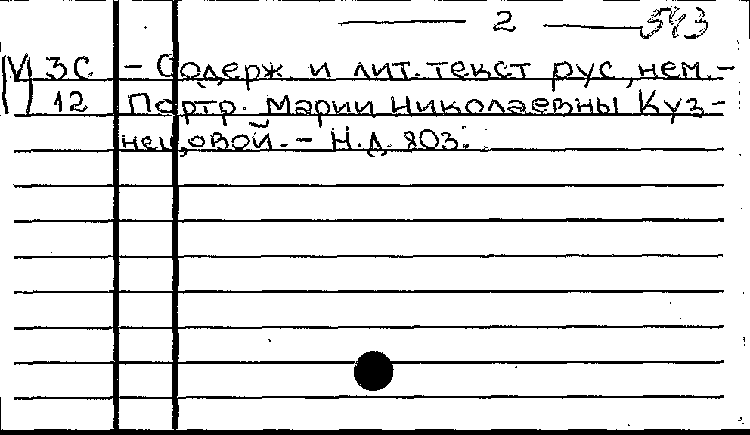 — 2 — 543
М 3С – Содерж. и лит. текст рус, нем. –
12 Портр. Марии Николаевны Куз-
нецовой. – Н.д. 803.